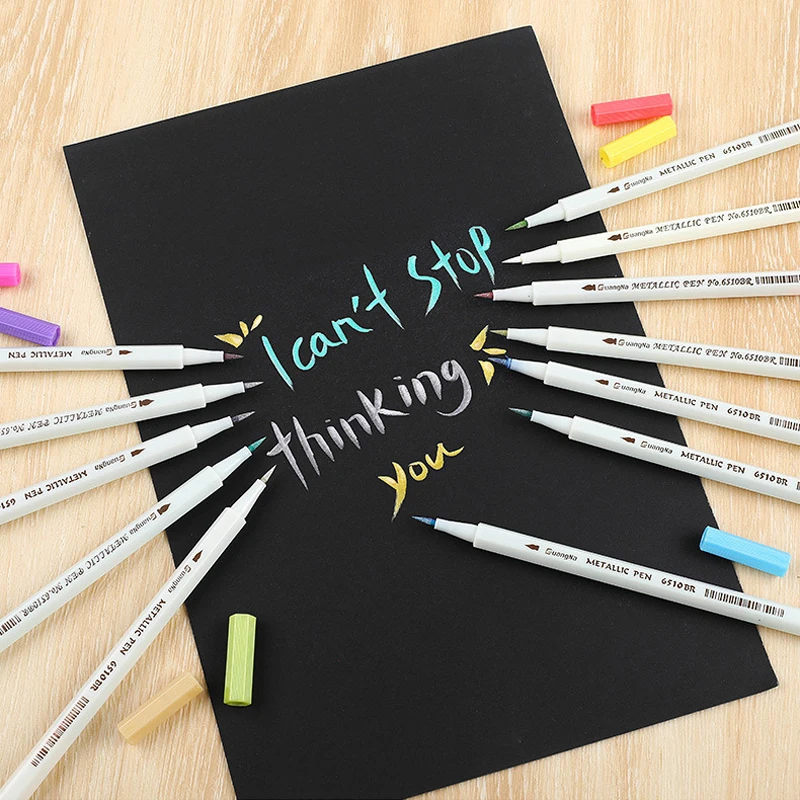 I can't Stop
thinking
you
GuangNa METALLIC PEN 6510BR
GuangNa METALLIC PEN No.6510BR
GuangNa METALLIC PEN No.6510BR
GuangNa METALLIC PEN No.6510BR
GuangNa METALLIC PEN 6510BR
GuangNa METALLIC PEN 6510BR
GuangNa METALLIC PEN 6510BR
GuangNa METALLIC PEN
GuangNa METALLIC PEN No.65
GuangNa METALLIC PEN 6510
GuangNa METALLIC PEN No.6510BR
GuangNa METALLIC PEN 6510BR